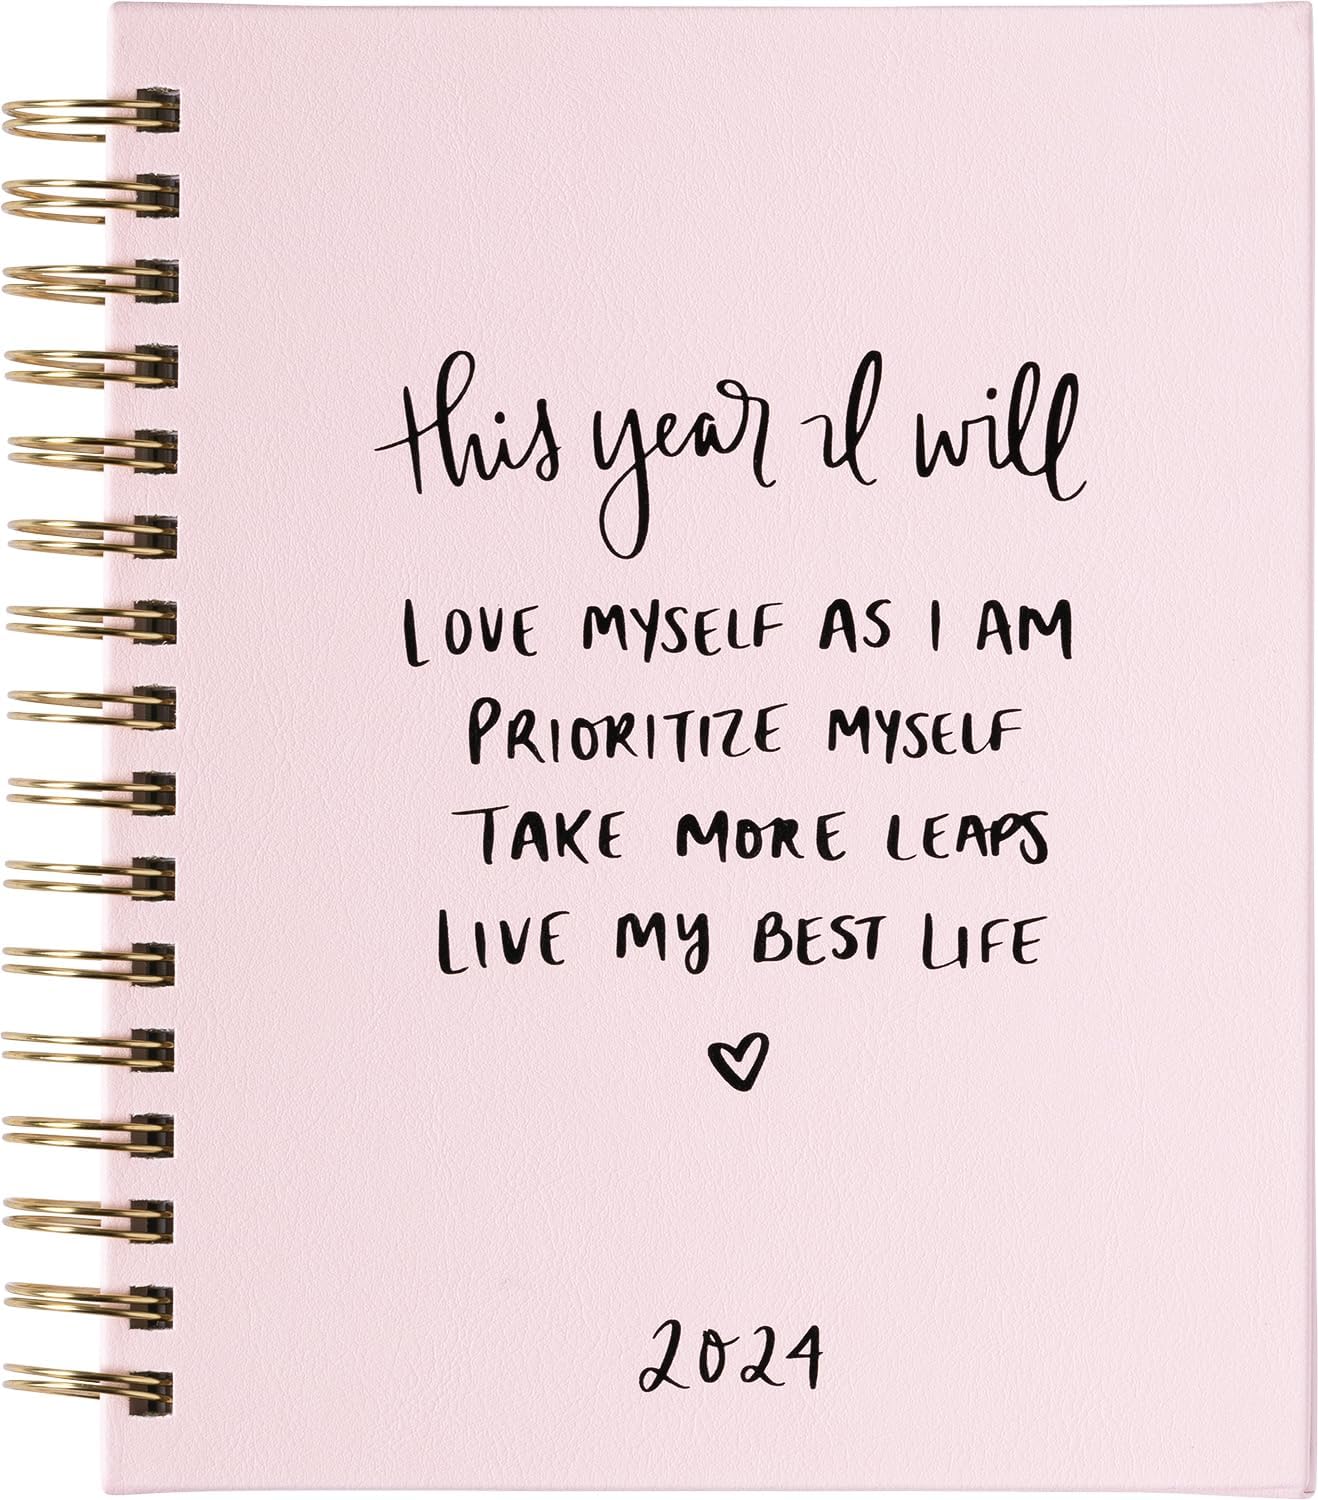 this year I will
LOVE MYSELF AS I AM
PRIORITIZE MYSELF
TAKE MORE LEAPS
LIVE MY BEST LIFE
2024